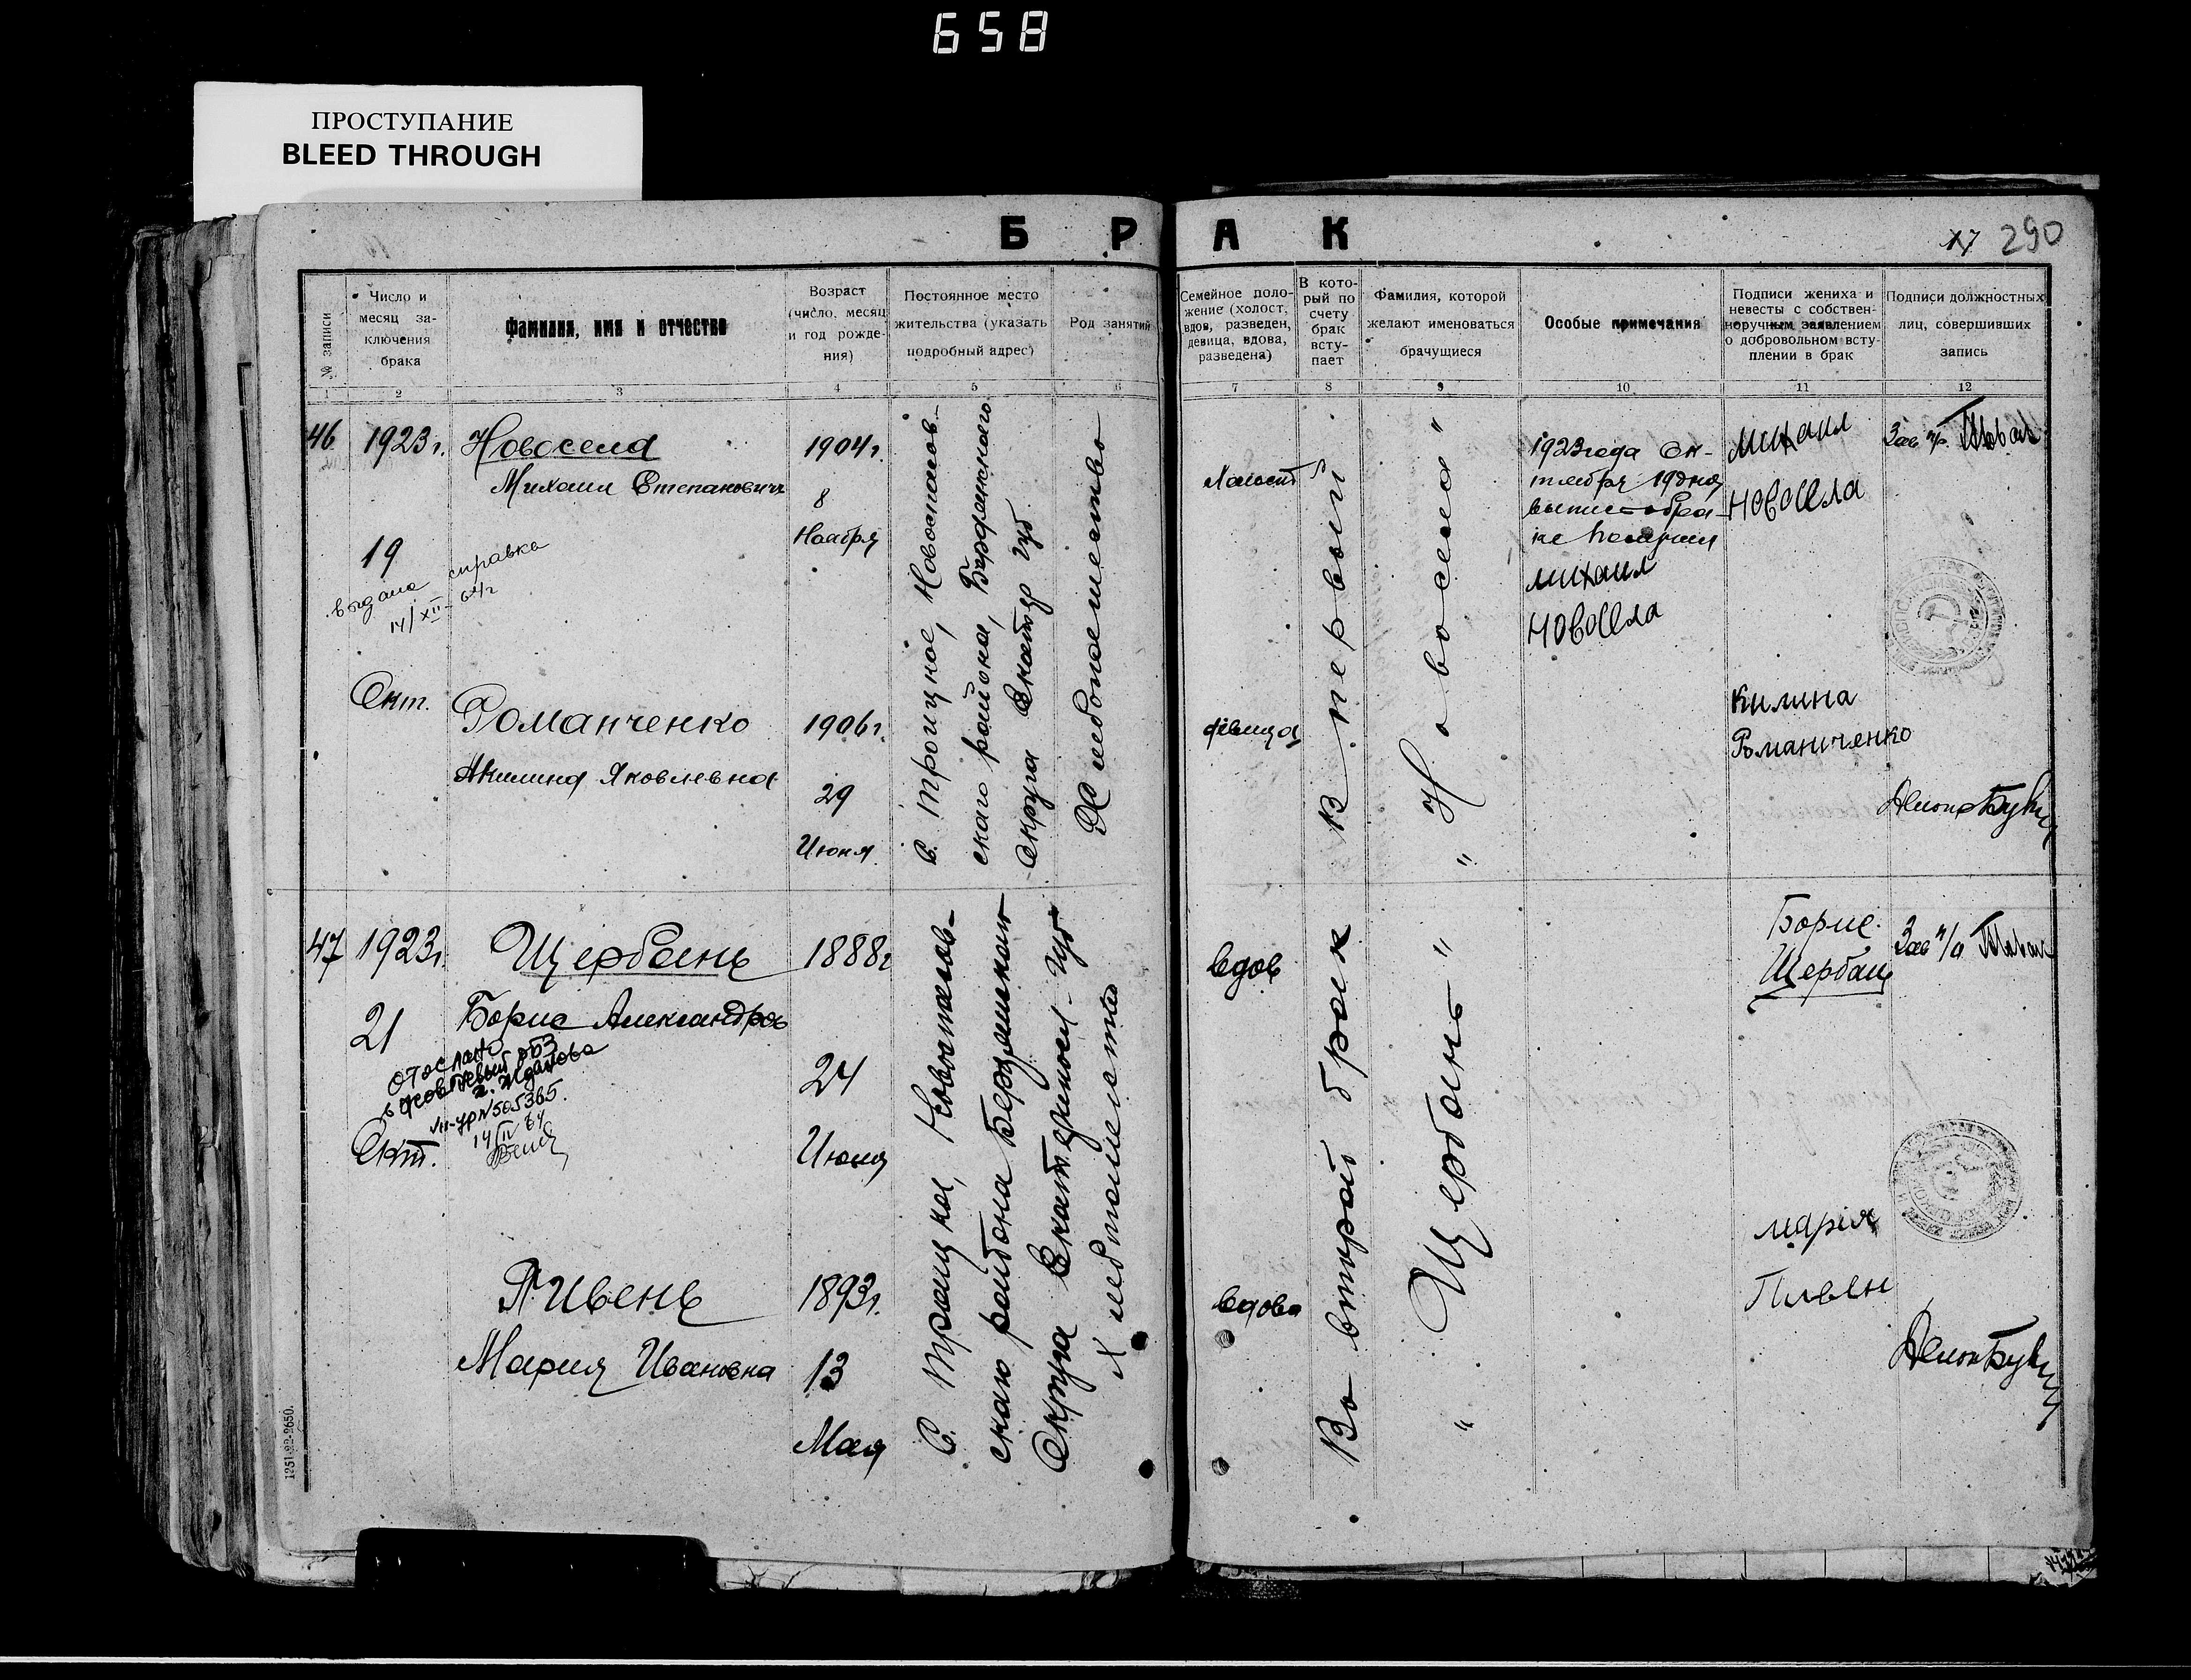 658
ПРОСТУПАНИЕ
BLEED THROUGH
БРАК
17 290
№ записи
Число и месяц заключения брака
Фамилия, имя и отчество
Возраст (число, месяц и год рождения)
Постоянное место жительства (указать подробный адрес)
Род занятий
Семейное положение (холост, вдов, разведен, девица, вдова, разведена)
В который по счету брак вступает
Фамилия, которой желают именоваться брачущиеся
Особые примечания
Подписи жениха и невесты с собственноручным заявлением о добровольном вступлении в брак
Подписи должностных лиц, совершивших запись
1 2 3 4 5 6 7 8 9 10 11 12
46
1923г.
19
Окт.
выдана справка
14/XII-64г
Новосела
Михаил Степанович
1904г.
8
Ноября
Романченко
Акилина Яковлевна
1906г.
29
Июня
С. Троицкое, Новоспасов-
ского района, Бердянского
Округа Екатер губ.
Хлебопашество
Холост
девица
В первый
" Новосела "
1923года Ок-
тября 19дня
выпис о бра-
ке получил
михаил
новосела
михаил
новосела
килина
Романченко
Зав
47
1923г.
21
Окт.
Щербань
Борис Александров
отослано
г. Жданова
№505365.
14/IV 64
1888г
24
Июня
Пивень
Мария Ивановна
1893г.
13
Мая
С. Троицкое, Новоспасов-
ского района Бердянского
Округа Екатериносл. губ
Хлебопашество
вдов
вдова
Во второй брак
" Щербань "
Борис
Щербань
мария
Пивен
Зав п/о
1251-22-2650.